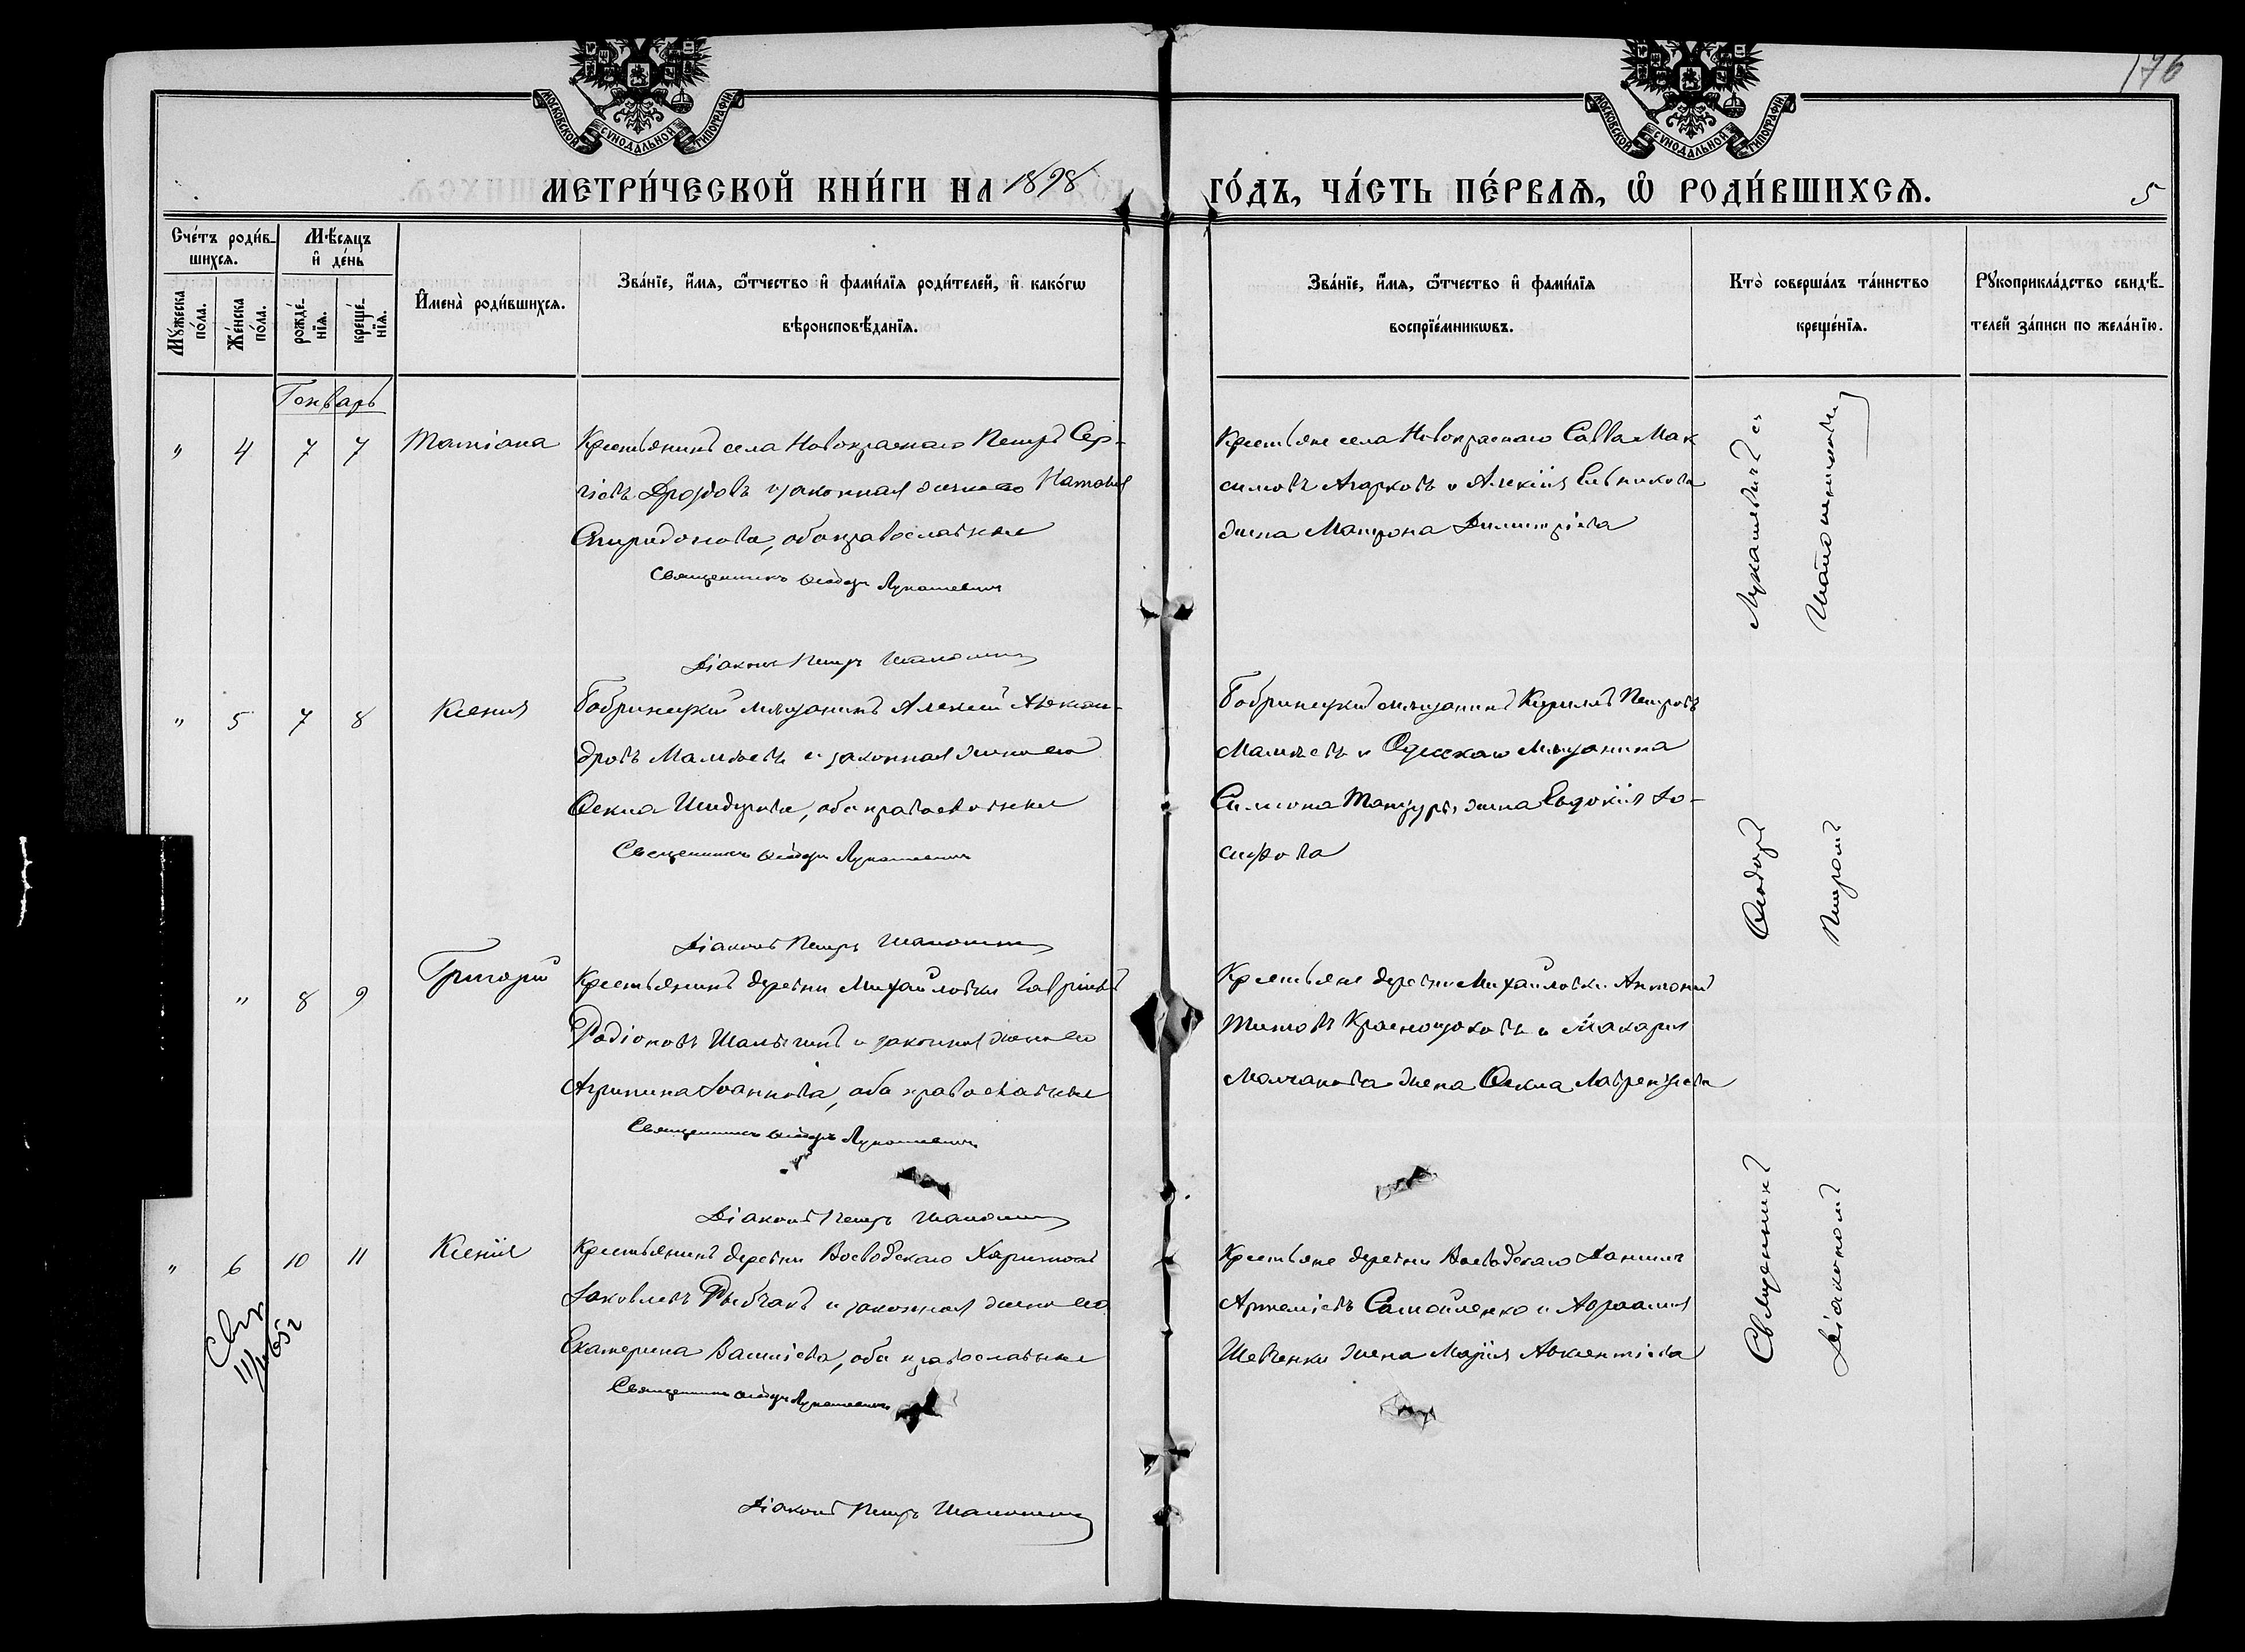 176
МОСКОВСКОЙ СѴНОДАЛЬНОЙ ТИПОГРАФІИ
МОСКОВСКОЙ СѴНОДАЛЬНОЙ ТИПОГРАФІИ
МЕТРИ́ЧЕСКОЙ КНИ́ГИ НА 1898
ГО́ДЪ, ЧА́СТЬ ПЕ́РВАѦ, Ѡ РОДИ́ВШИХСѦ.
5
Сче́тъ роди́в-
шихсѧ.
Мѣ́сѧцъ
и҆ де́нь
Мꙋ́жеска
по́ла.
Же́нска
по́ла.
рожде́-
нїѧ.
креще́-
нїѧ.
И҆мена̀ роди́вшихсѧ.
Зва́нїе, и҆́мѧ, ѻ҆́тчество и҆ фами́лїѧ роди́телей, и҆ како́гѡ
вѣроисповѣ́данїѧ.
Зва́нїе, и҆́мѧ, ѻ҆́тчество и҆ фами́лїѧ
воспрїе́мникѡвъ.
Кто̀ соверша́лъ та́инство
креще́нїѧ.
Рꙋкоприкла́дство свидѣ́-
телей за́писи по жела́нїю.
Генварь
" 4 7 7 Татіана
Крестьянинъ села Новокраснаго Петръ Сер-
гіевъ Дроздовъ и законная жена его Наталія
Спиридонова, оба православные
Священникъ Ѳеодоръ Лукашевичъ
Діаконъ Петръ
Крестьяне села Новокраснаго Савва Мак
симовъ Агарковъ и Алексія
жена Матрона Димитріева
" 5 7 8 Ксенія
Бобринецкій мѣщанинъ Алексій Алексан-
дровъ Мамѣевъ и законная жена его
Ѳекла оба православные
Священникъ Ѳеодоръ Лукашевичъ
Діаконъ Петръ
Бобринецкій мѣщанинъ Кириллъ Петровъ
Мамѣевъ и Одесскаго мѣщанина
Симеона жена Евдокія Іо-
сифова
" 8 9 Григорій
Крестьянинъ деревни Михайловки Гавріилъ
Родіоновъ Шалыгинъ и законная жена его
Агрипина Іоаннова, оба православные
Священникъ Ѳеодоръ Лукашевичъ
Діаконъ Петръ
Крестьяне деревни Михайловки Антоній
Титовъ Краснощоковъ и Макарія
Молчанова жена Ѳекла Лаврентіева
" 6 10 11 Ксенія
Крестьянинъ деревни Воеводскаго Харитонъ
Іаковлевъ Рыбчакъ и законная жена его
Екатерина Василіева, оба православные
Священникъ Ѳеодоръ Лукашевичъ
Діаконъ Петръ
Крестьяне деревни Воеводскаго Даніилъ
Артеміевъ Самойленко и Авраамія
Шевченки жена Марія Авксентіева
Священникъ Ѳеодоръ Лукашевичъ съ
Діакономъ Петромъ